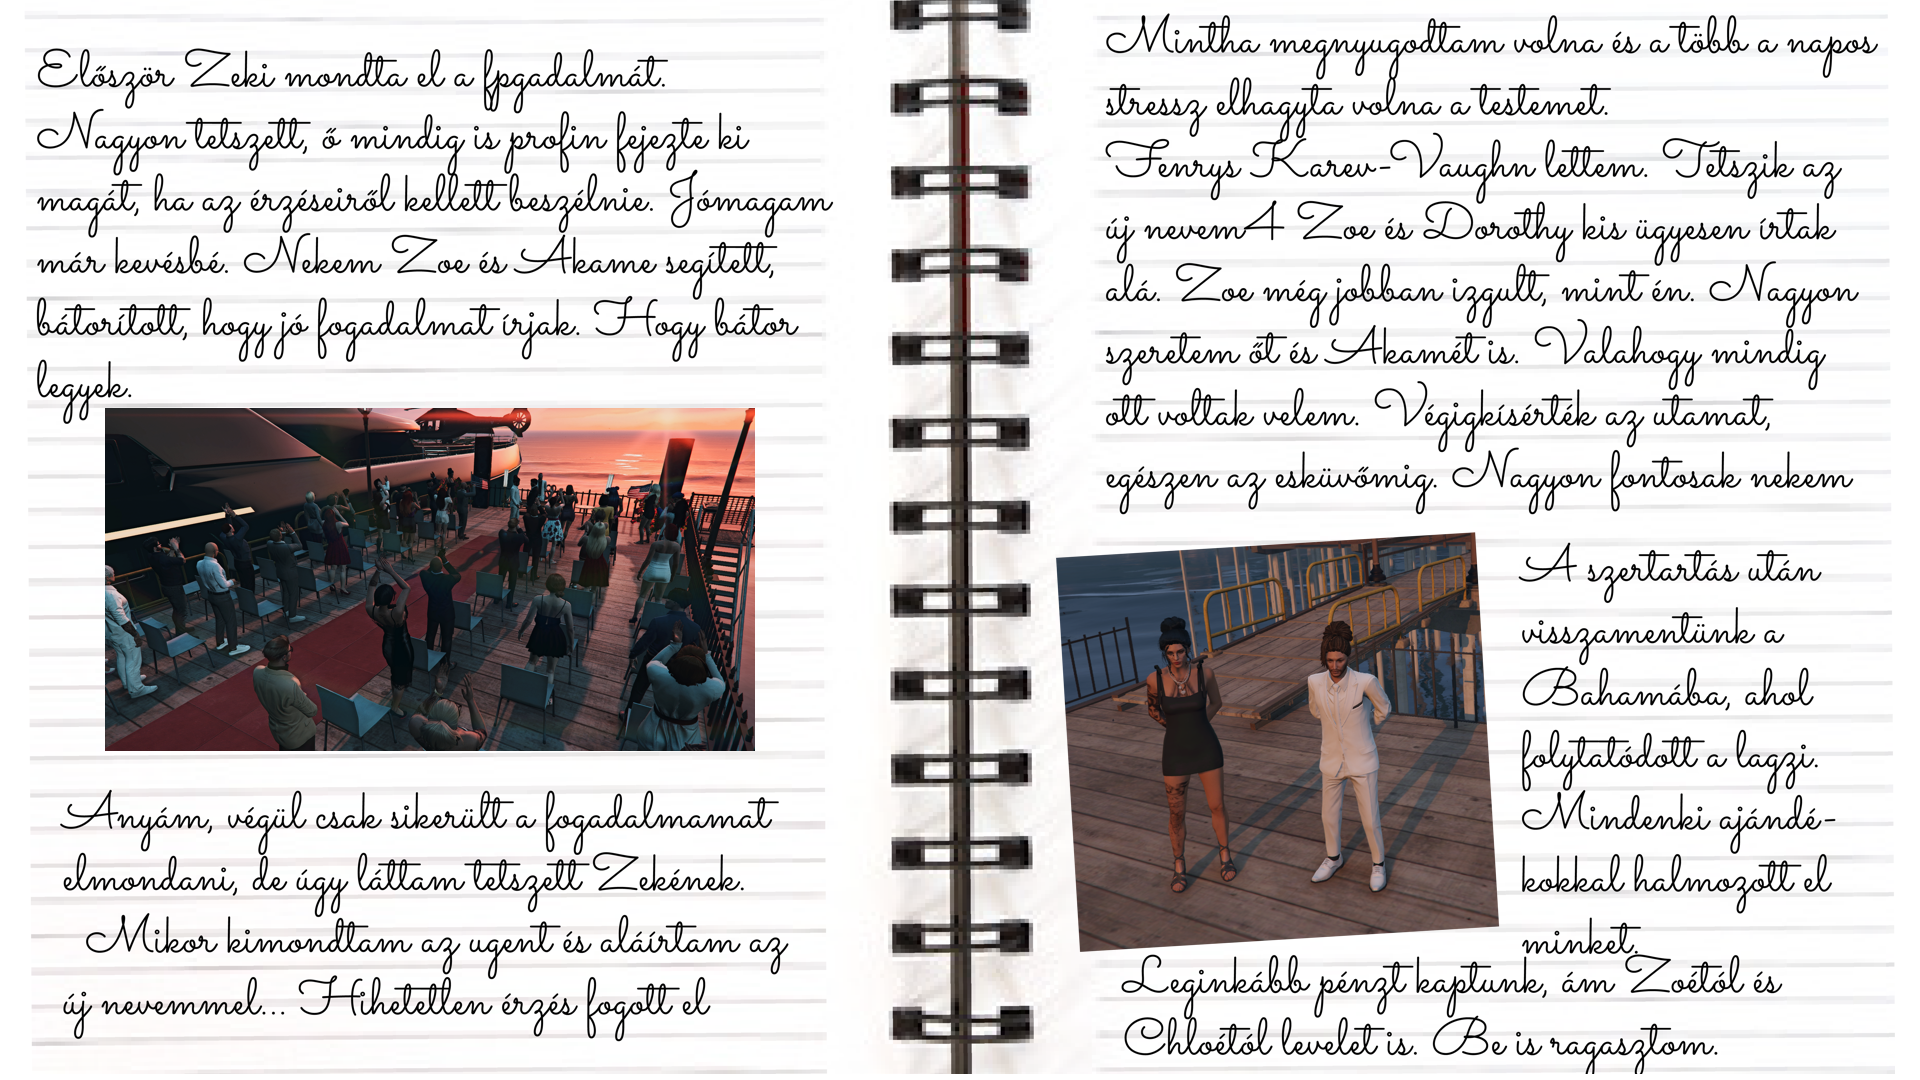 Először Zeki mondta el a fpgadalmát.
Nagyon tetszett, ő mindig is profin fejezte ki
magát, ha az érzéseiről kellett beszélnie. Jómagam
már kevésbé. Nekem Zoe és Akame segített,
bátorított, hogy jó fogadalmat írjak. Hogy bátor
legyek.
Anyám, végül csak sikerült a fogadalmamat
elmondani, de úgy láttam tetszett Zekének.
Mikor kimondtam az ugent és aláírtam az
új nevemmel... Hihetetlen érzés fogott el
Mintha megnyugodtam volna és a több a napos
stressz elhagyta volna a testemet.
Fenrys Karev-Vaughn lettem. Tetszik az
új nevem4 Zoe és Dorothy kis ügyesen írtak
alá. Zoe még jobban izgult, mint én. Nagyon
szeretem őt és Akamét is. Valahogy mindig
ott voltak velem. Végigkísérték az utamat,
egészen az esküvőmig. Nagyon fontosak nekem
A szertartás után
visszamentünk a
Bahamába, ahol
folytatódott a lagzi.
Mindenki ajándé-
kokkal halmozott el
minket.
Leginkább pénzt kaptunk, ám Zoétól és
Chloétól levelet is. Be is ragasztom.